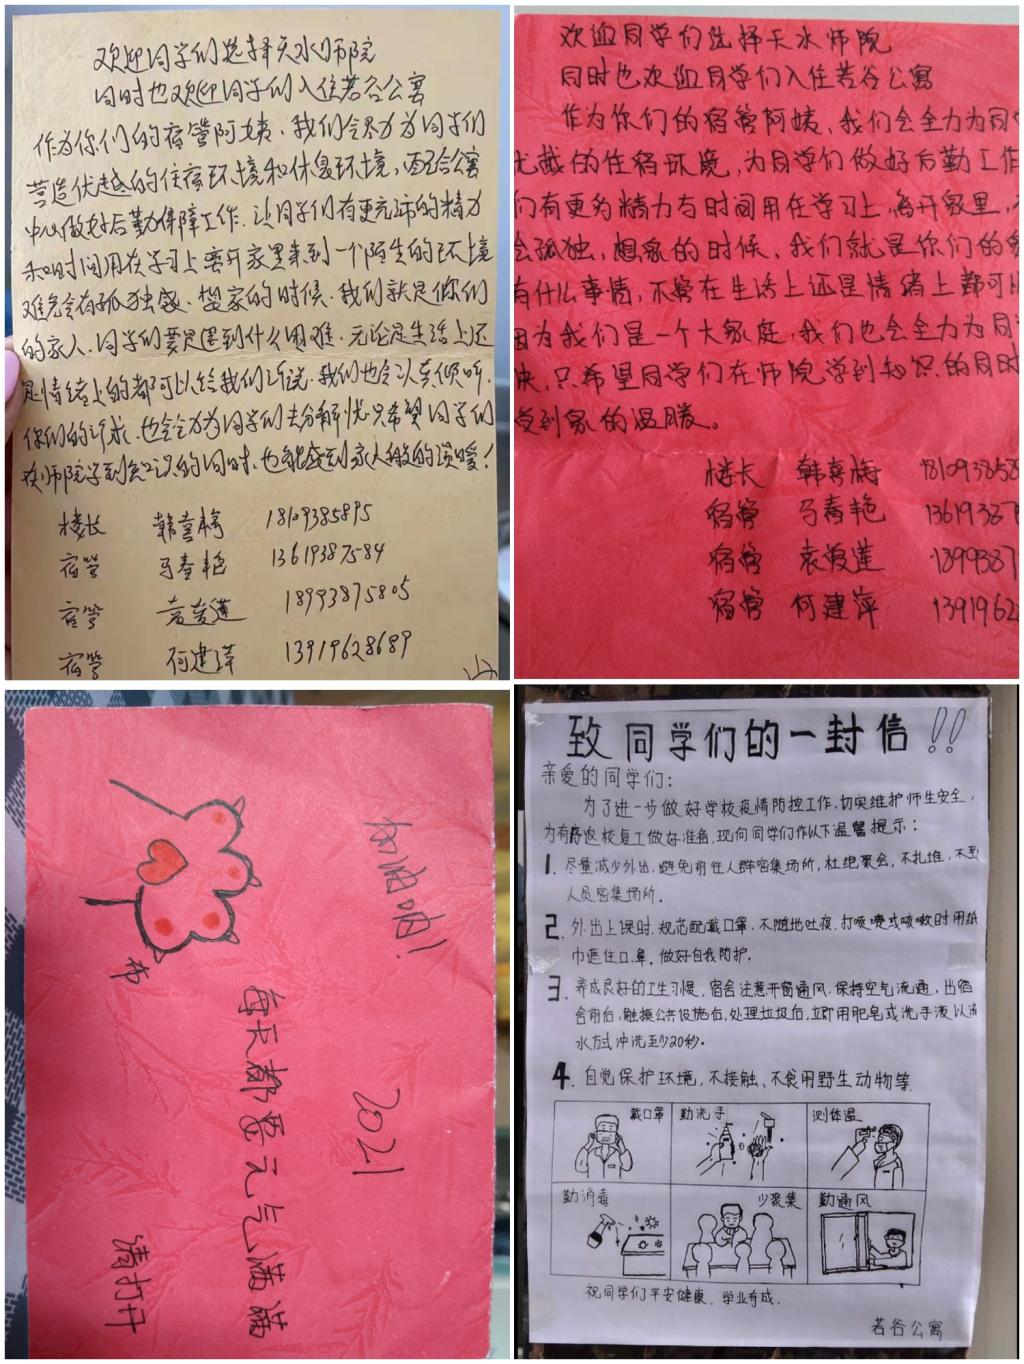 欢迎同学们选择天水师院
同时也欢迎同学们入住若谷公寓
作为你们的宿管阿姨、我们会尽力为同学们
营造优越的住宿环境和休息环境，配合公寓
中心做好后勤保障工作.让同学们有更充沛的精力
和时间用在学习上离开家里来到一个陌生的环境
难免会有孤独感、想家的时候.我们就是你们
的家人.同学们要是遇到什么困难.无论是生活上还
是情绪上的都可以给我们诉说.我们也会认真倾听.
你们的诉求.也会全力为同学们去分解忧只希望同学们
在师院学到知识的同时.也能感到家人般的温暖！
楼长 韩喜梅 18109385895
宿管 马春艳 13619387584
宿管 袁爱莲 18993875805
宿管 何建萍 13919628689
欢迎同学们选择天水师院
同时也欢迎同学们入住若谷公寓
作为你们的宿管阿姨、我们会全力为同
优越的住宿环境，为同学们做好后勤工作
们有更多精力与时间用在学习上,离开家里,
会孤独，想家的时候，我们就是你们的
有什么事情，不管在生活上还是情绪上都可以
因为我们是一个大家庭,我们也会全力为同
快,只希望同学们在师院学到知识的同时
受到家的温暖。
楼长 韩喜梅 181093858
宿管 马春艳 13619387
宿管 袁爱莲 1899387
宿管 何建萍 1391962
加油呦！
布
2021
每天都要元气满满
请打开
致同学们的一封信!!
亲爱的同学们：
为了进一步做好学校疫情防控工作,切实维护师生安全，
为有序返校复工做好准备,现向同学们作以下温馨提示：
1.尽量减少外出.避免前往人群密集场所,杜绝聚会,不扎堆,不到
人员密集场所.
2.外出上课时.规范配戴口罩.不随地吐痰.打喷嚏或咳嗽时用纸
巾遮住口鼻.做好自我防护.
3.养成良好的卫生习惯,宿舍注意开窗通风.保持空气流通,出宿
舍前后,触摸公共设施后,处理垃圾后,立即用肥皂或洗手液以流
水方式冲洗至少20秒.
4.自觉保护环境,不接触、不食用野生动物等.
戴口罩 勤洗手 测体温
勤消毒 少聚集 勤通风
祝同学们平安健康.学业有成.
若谷公寓